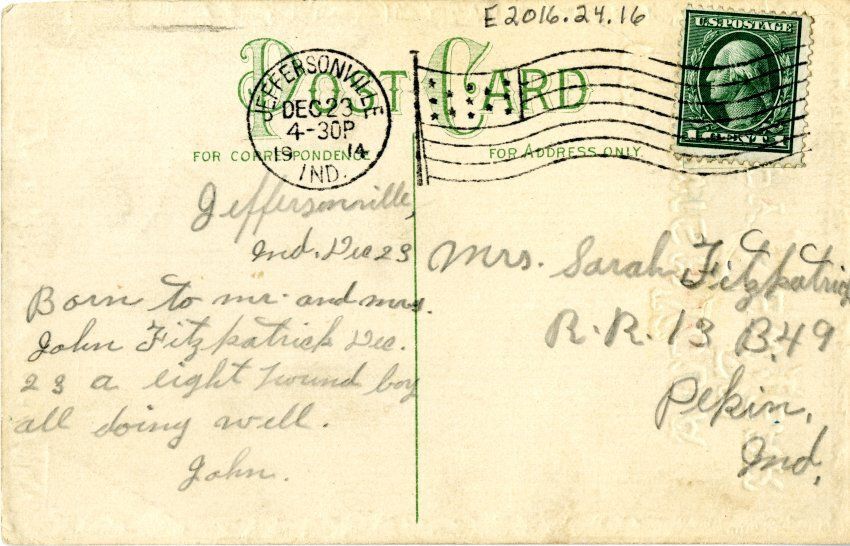 E2016.24.16
U.S. POSTAGE
POST CARD
JEFFERSONVILLE
DEC 23
4-30P
19 14
IND.
FOR CORRESPONDENCE
FOR ADDRESS ONLY.
Jeffersonville,
Ind. Dec 23
Born to mr. and mrs.
John Fitzpatrick Dec.
23 a eight pound boy
all doing well.
John.
Mrs. Sarah Fitzpatrick
R.R. 13 B.49
Pekin,
Ind.